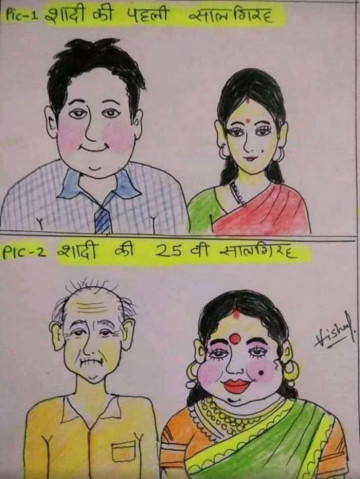 Pic-1 शादी की पहली सालगिरह
PIC-2 शादी की 25 वी सालगिरह